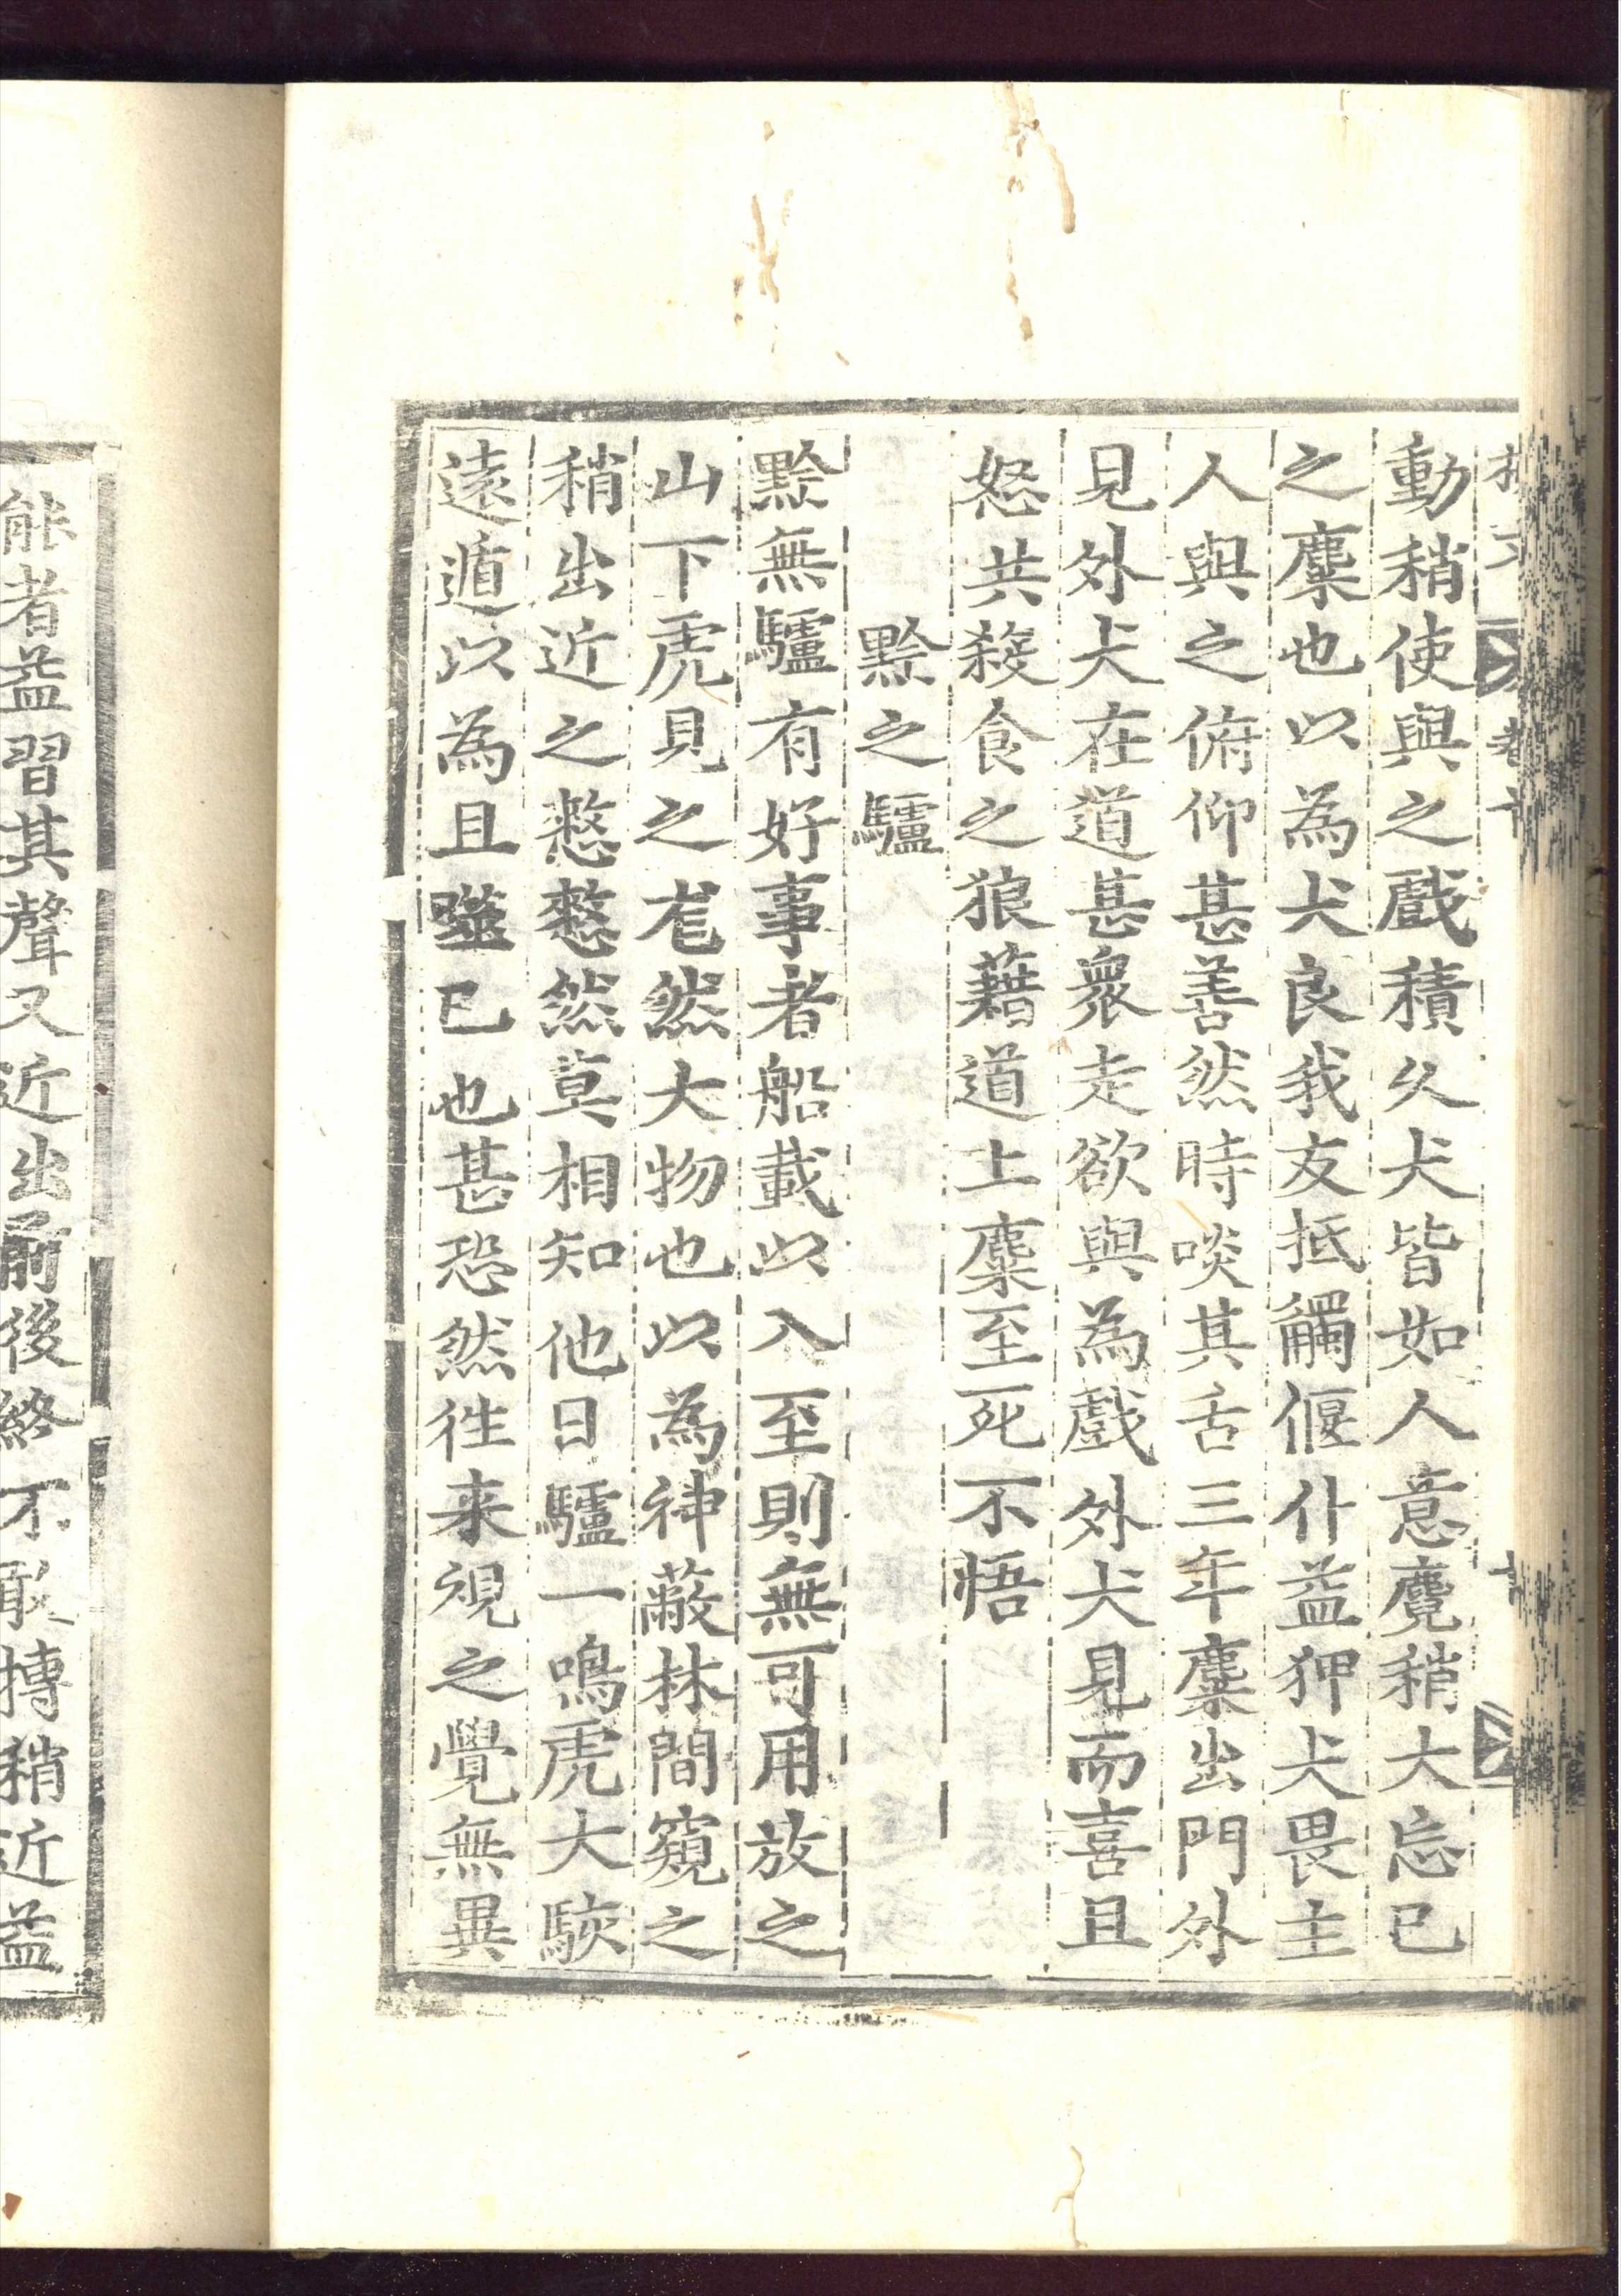 動稍使與之戲積久犬皆如人意麑稍大忘已
之麋也以為犬良我友抵觸偃仆益狎犬畏主
人與之俯仰甚善然時啖其舌三年麋出門外
見外犬在道甚衆走欲與為戲外犬見而喜且
怒共殺食之狼藉道上麋至死不悟
黔之驢
黔無驢有好事者船載以入至則無可用放之
山下虎見之尨然大物也以為神蔽林間窺之
稍出近之憗憗然莫相知他日驢一鳴虎大駭
遠遁以為且噬已也甚恐然往来視之覺無異
能者益習其聲又近出前後終不敢搏稍近益